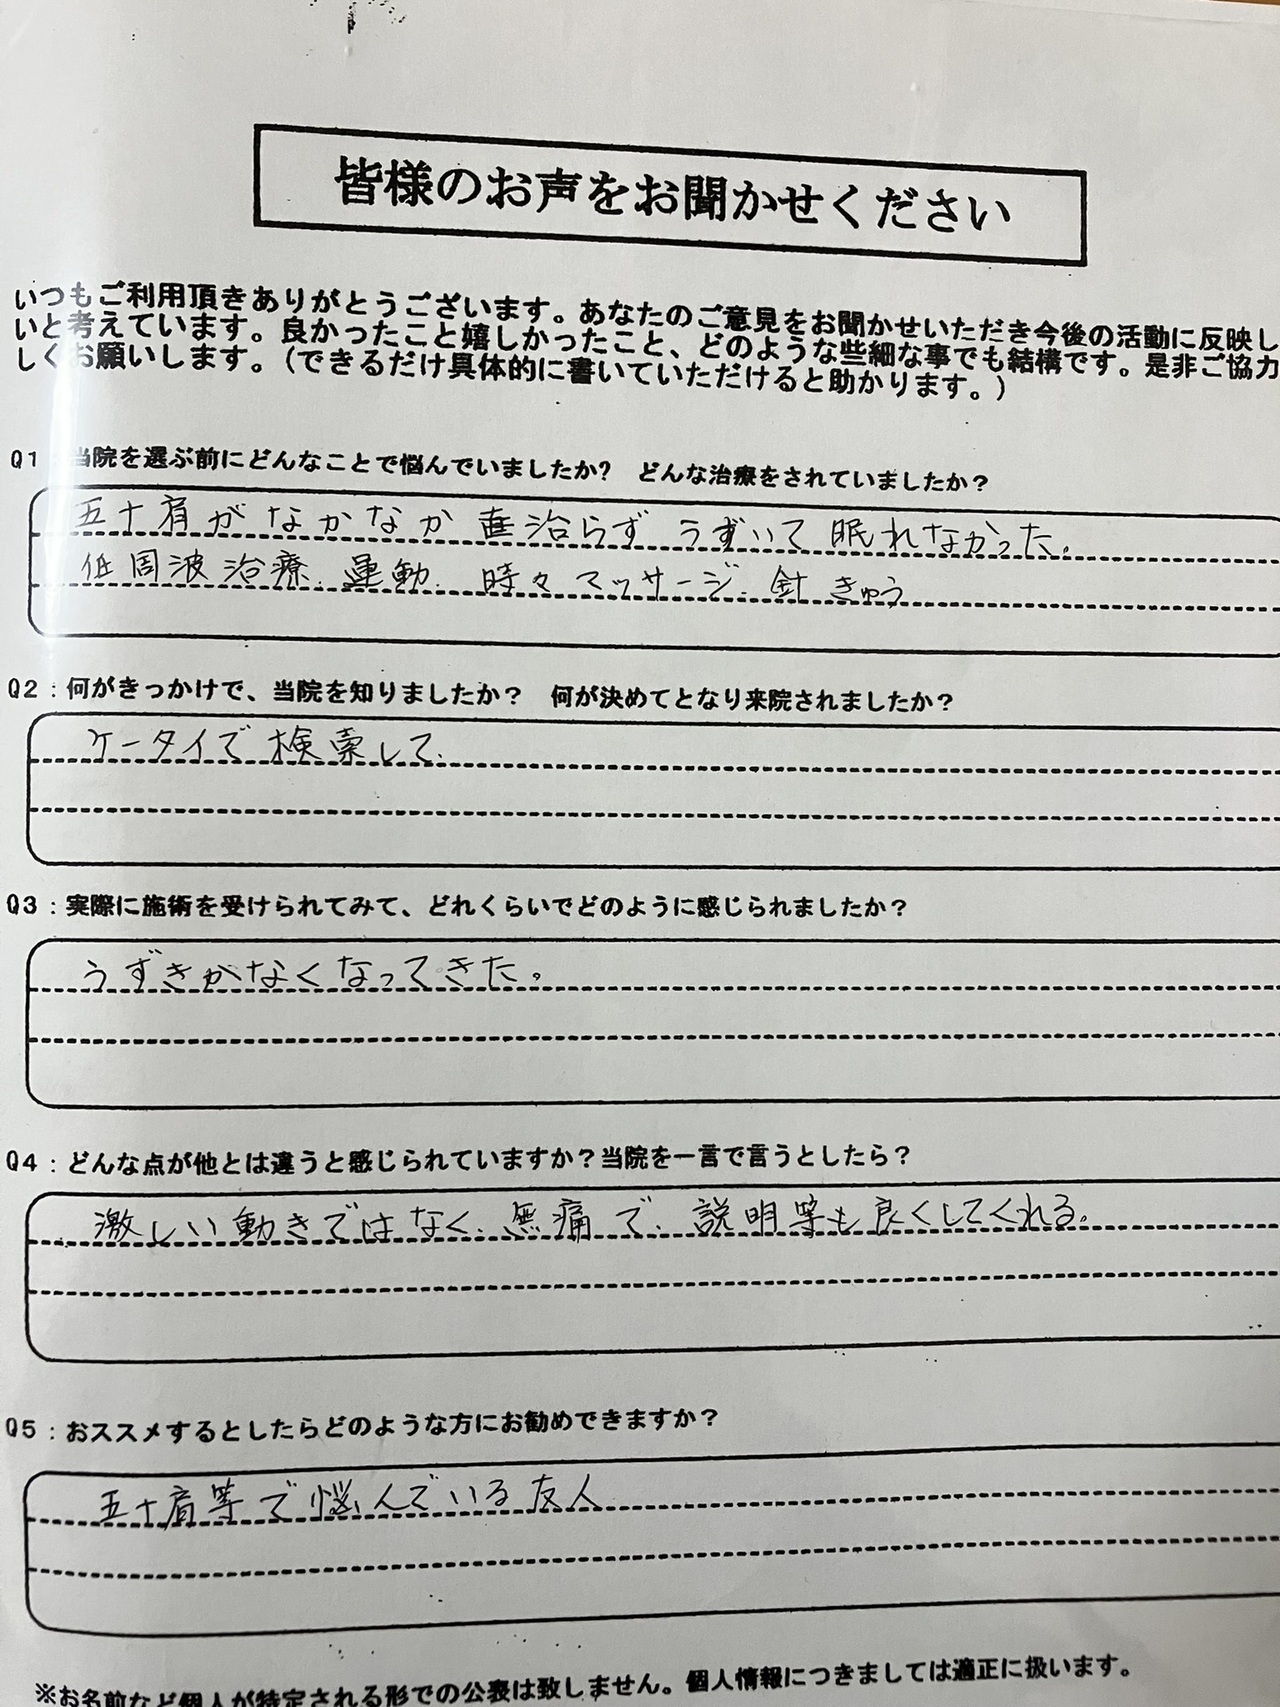 皆様のお声をお聞かせください
いつもご利用頂きありがとうございます。あなたのご意見をお聞かせいただき今後の活動に反映し
いと考えています。良かったこと嬉しかったこと、どのような些細な事でも結構です。是非ご協力
しくお願いします。(できるだけ具体的に書いていただけると助かります。)
Q1:当院を選ぶ前にどんなことで悩んでいましたか? どんな治療をされていましたか?
五十肩がなかなか治らず うずいて 眠れなかった。
低周波治療、運動、時々マッサージ、針 きゅう
Q2:何がきっかけで、当院を知りましたか? 何が決めてとなり来院されましたか?
ケータイで検索して、
Q3:実際に施術を受けられてみて、どれくらいでどのように感じられましたか?
うずきがなくなってきた。
Q4:どんな点が他とは違うと感じられていますか?当院を一言で言うとしたら?
激しい動きではなく、無痛で、説明等も良くしてくれる。
Q5:おススメするとしたらどのような方にお勧めできますか?
五十肩等で悩んでいる友人
※お名前など個人が特定される形での公表は致しません。個人情報につきましては適正に扱います。